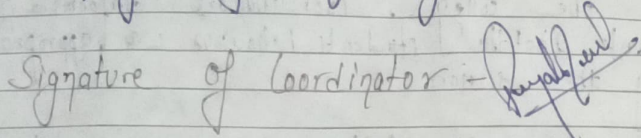 Signature of Coordinator -